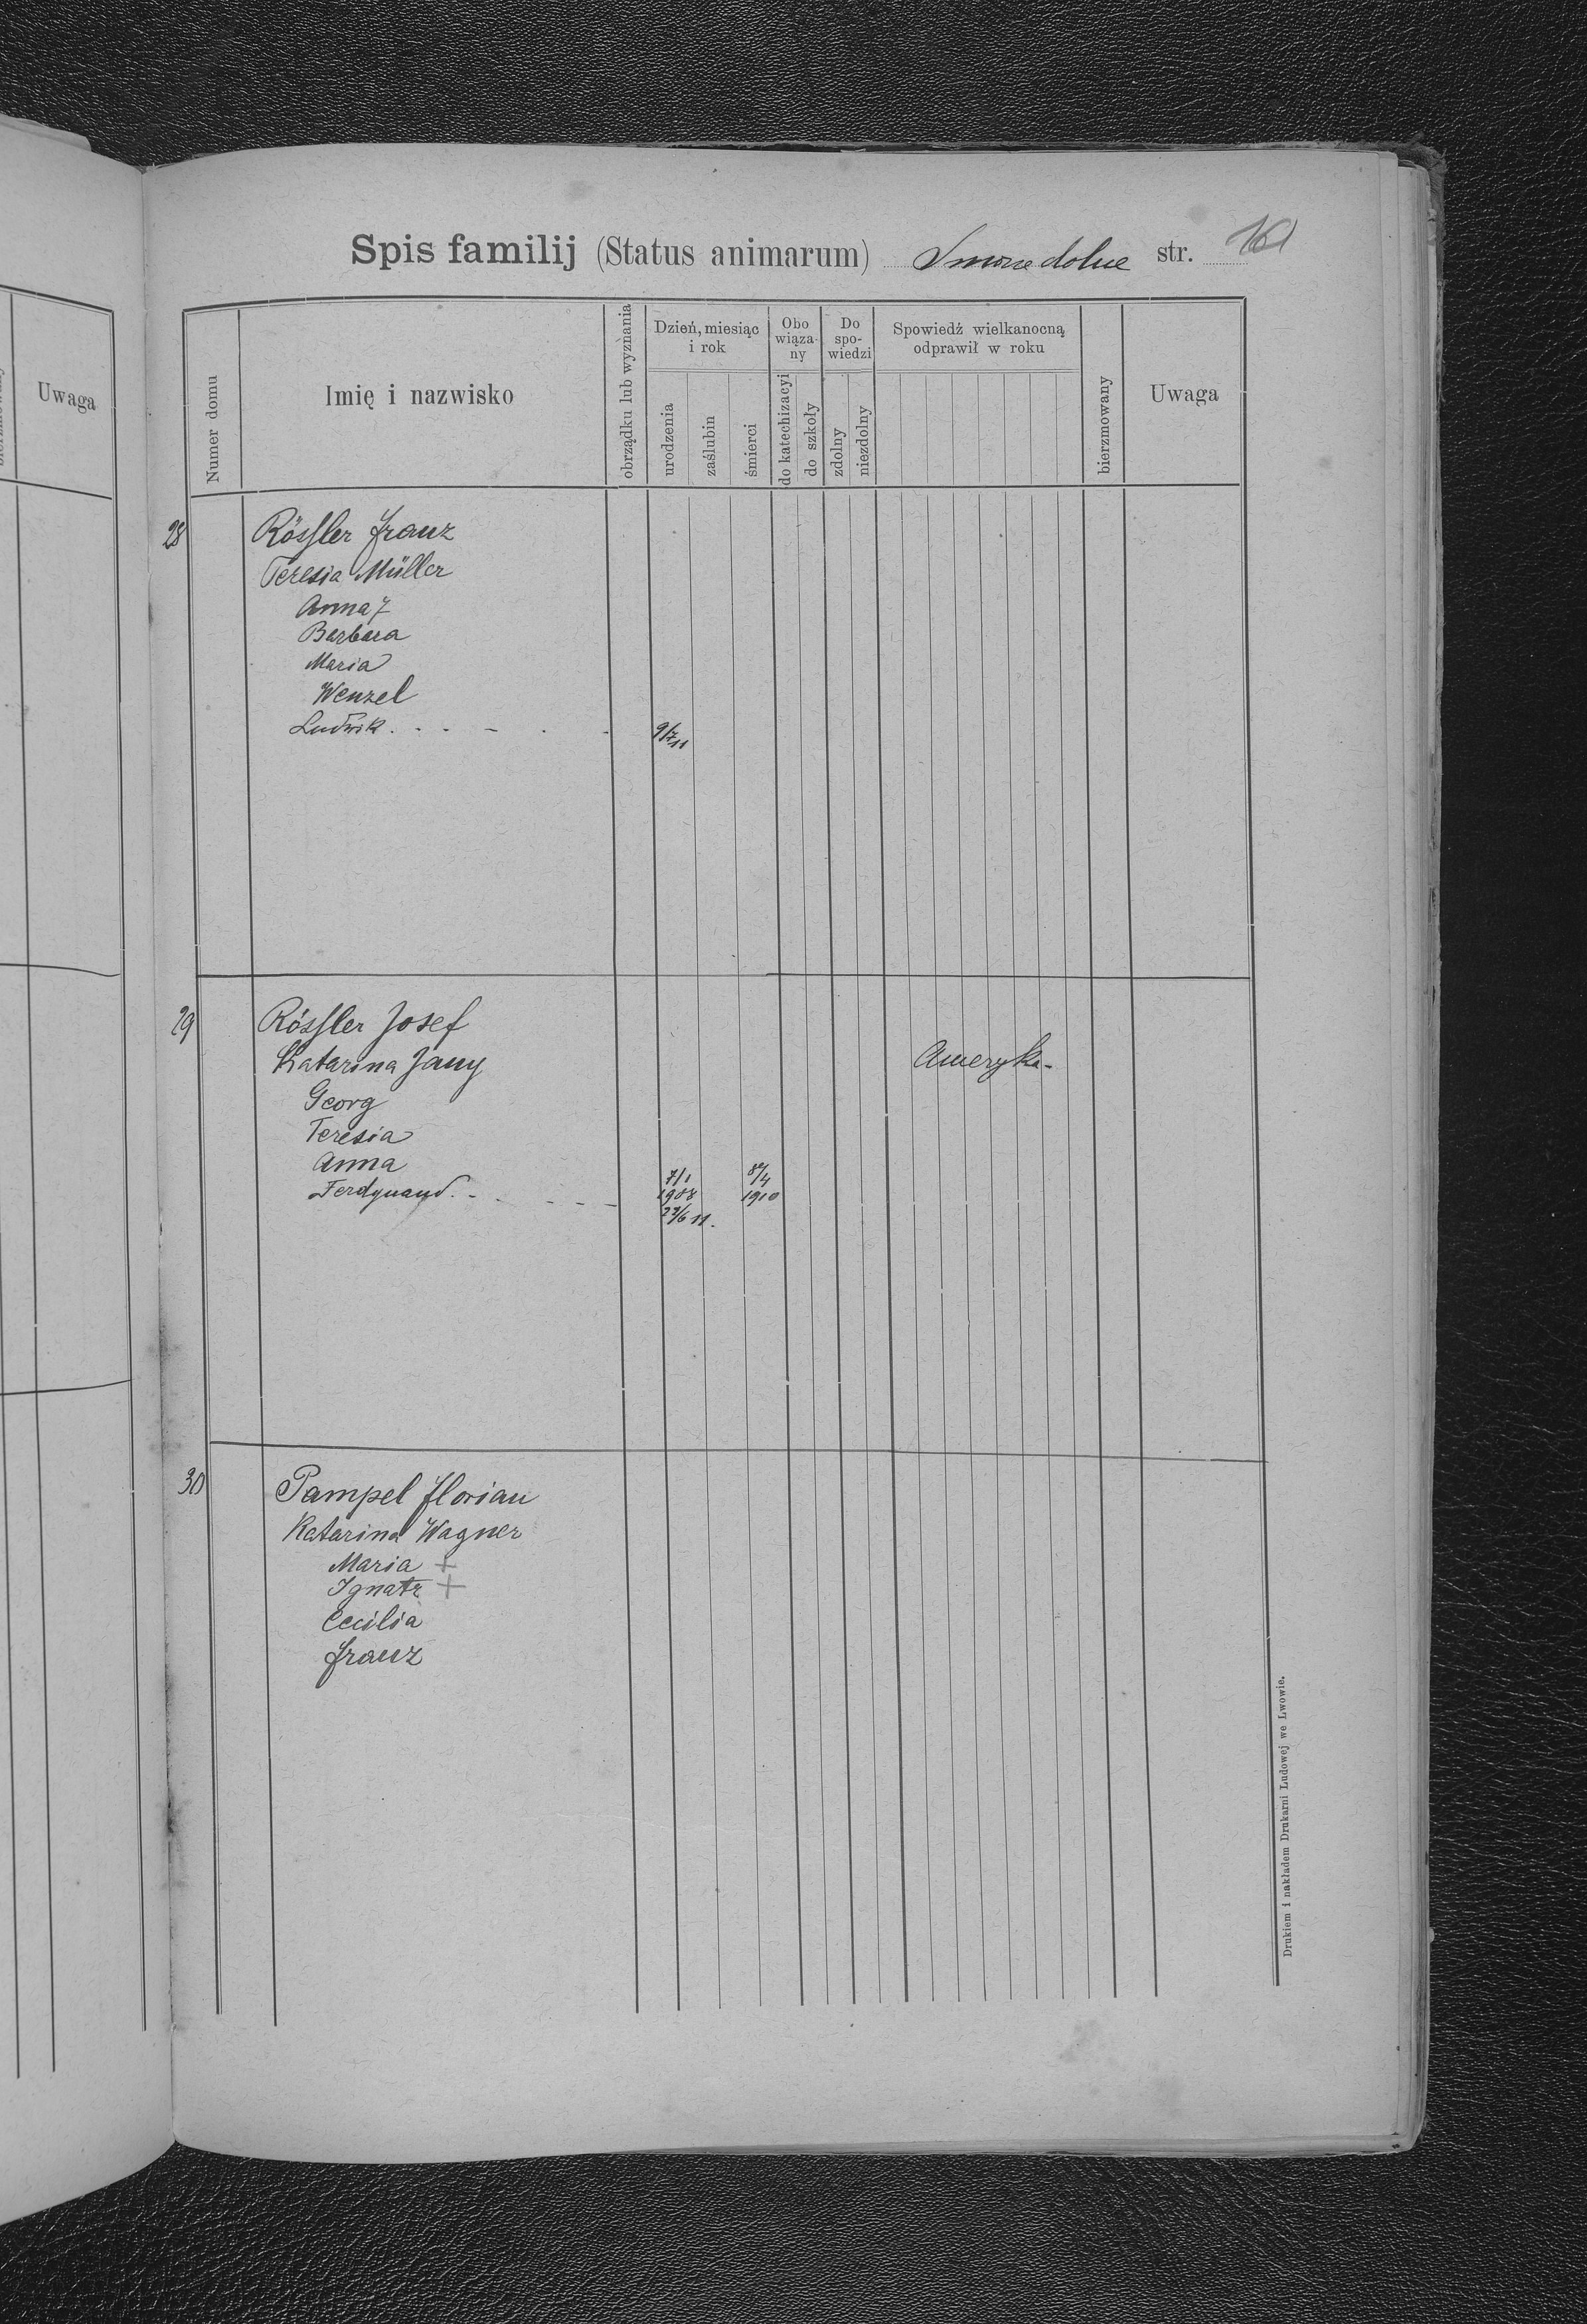 Spis familij (Status animarum) Smorze dolne str. 161
Numer domu
Imię i nazwisko
obrządku lub wyznania
Dzień, miesiąc i rok
urodzenia
zaślubin
śmierci
Obo wiąza- ny
do katechizacyi
do szkoły
Do spo- wiedzi
zdolny
niezdolny
Spowiedź wielkanocną
odprawił w roku
bierzmowany
Uwaga
Uwaga
28 Rössler Franz
Teresia Müller
Anna
Barbara
Maria
Wenzel
Ludwik . . . - . . 9/7 11
29 Rössler Josef
Katarina Jany Ameryka.
Georg
Teresia
Anna 7/1 1908 1910
Ferdynand. - . - - - 22/6 11.
30 Pampel Florian
Katarina Wagner
Maria +
Ignatz +
Cecilia
Franz
Drukiem i nakładem Drukarni Ludowej we Lwowie.